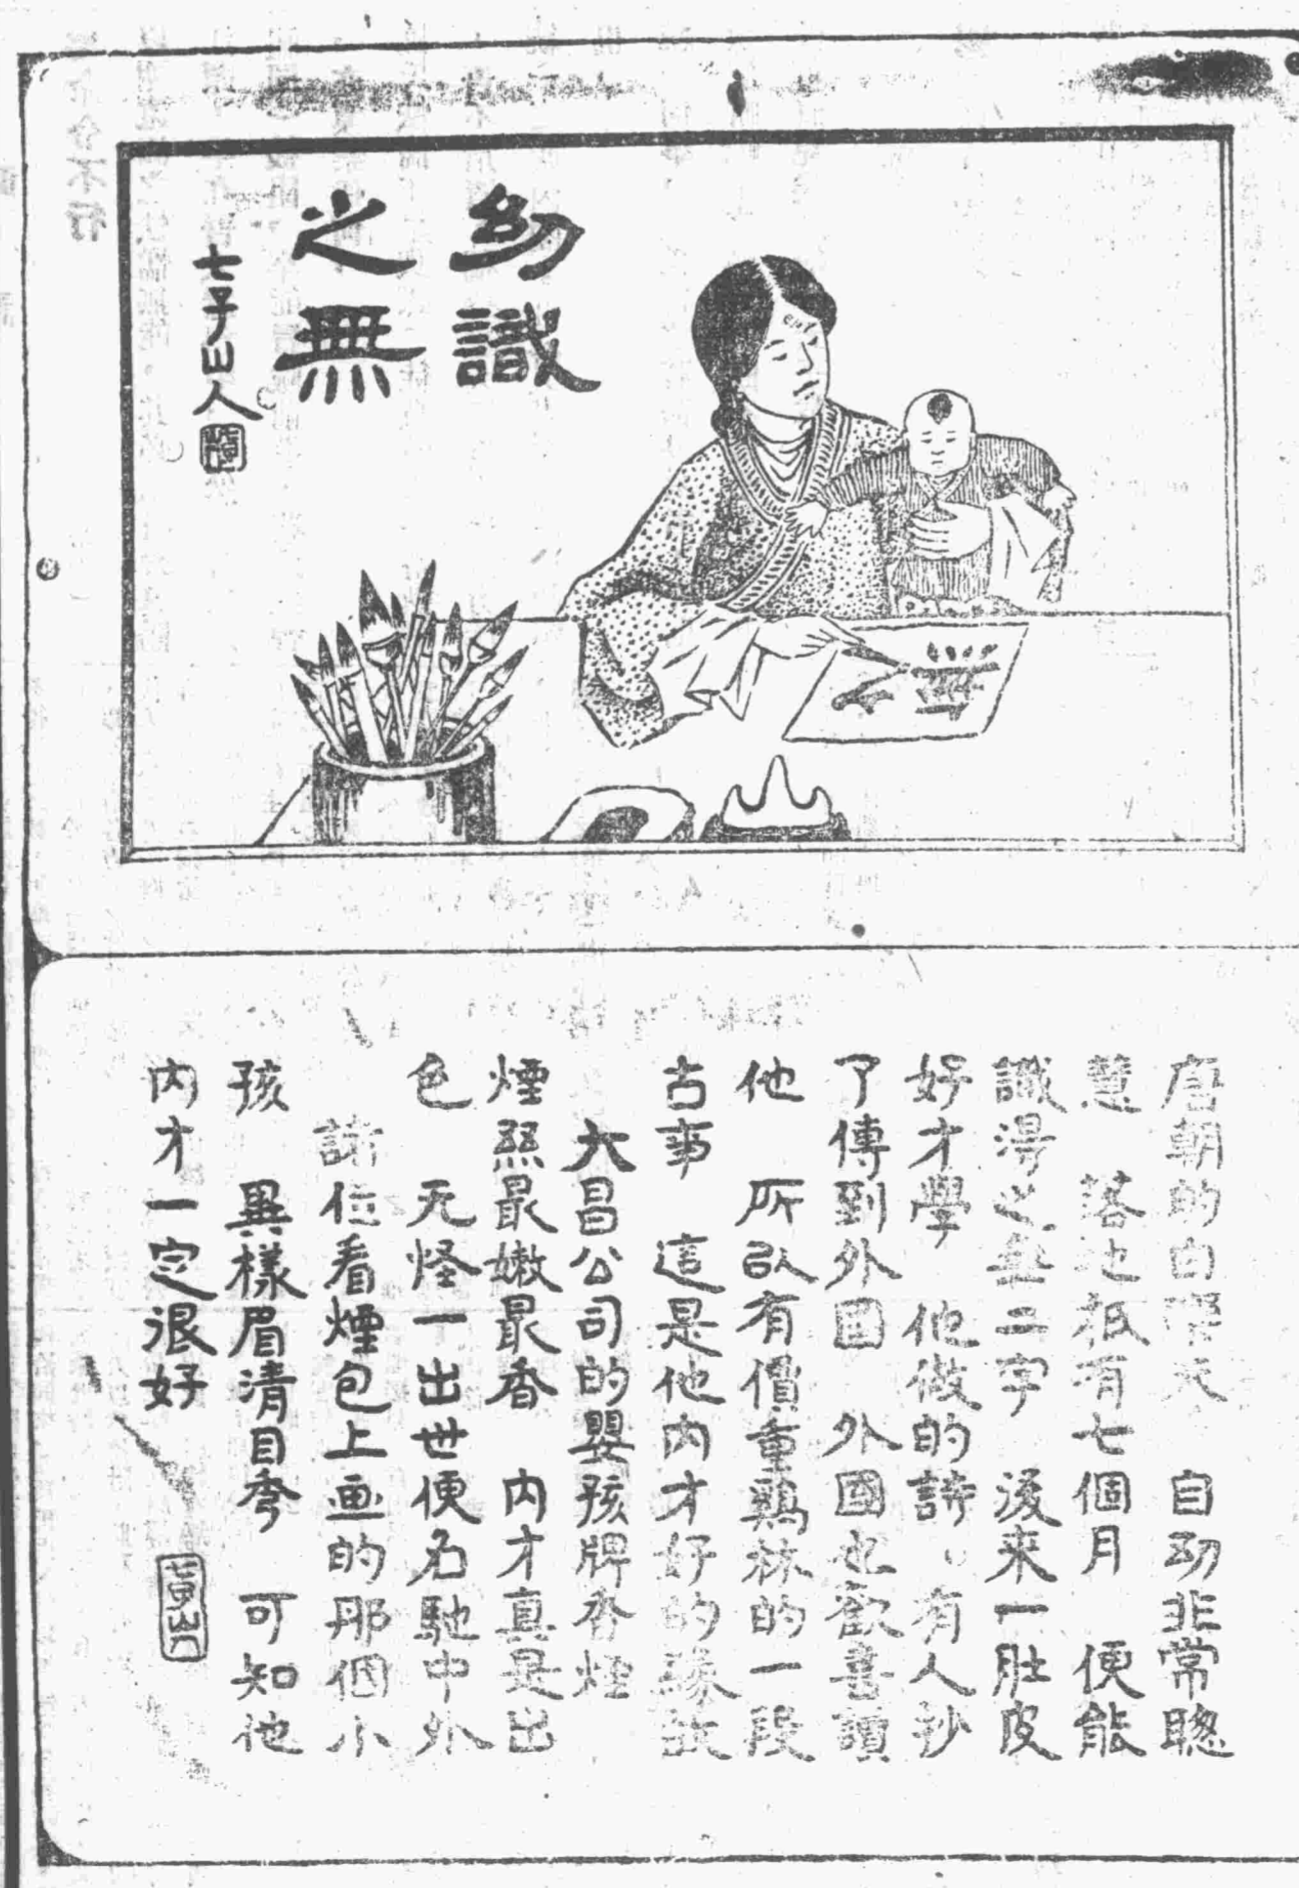 幼識
之無
七子山人
之無
唐朝的白樂天 自幼非常聰
慧 落地祇有七個月 便能
識得之無二字 後來一肚皮
好才學 他做的詩 有人抄
了傳到外國 外國也歡喜讀
他 所以有價重鷄林的一段
古事 這是他內才好的緣故
大昌公司的嬰孩牌香烟
煙絲最嫩最香 內才真是出
色 无怪一出世便名馳中外
諸位看煙包上画的那個小
孩 異樣眉清目秀 可知他
內才一定很好
黃山